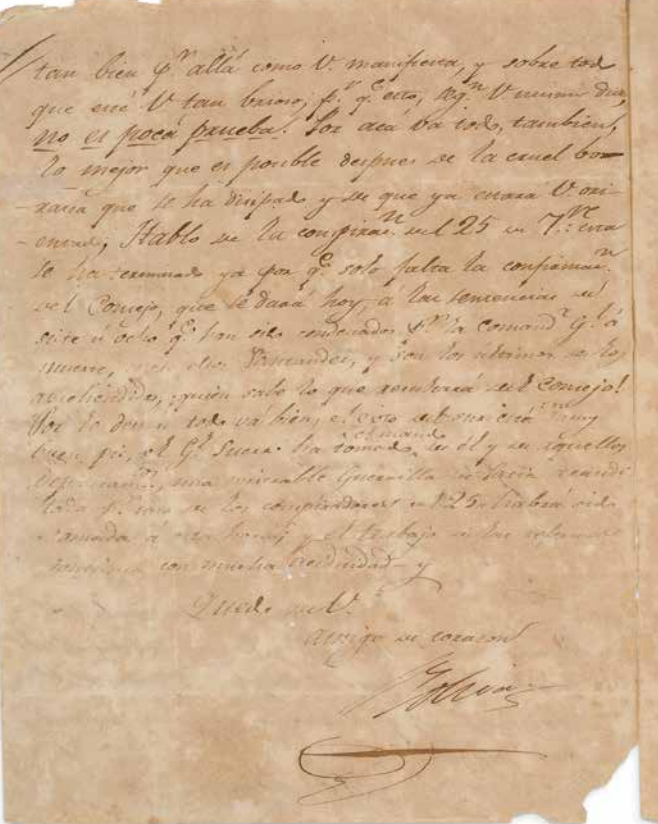 tan bien p.r allá como V. manifiesta, y sobre todo
que esté V tan brioso, p.r q.e esto, seg.n V mismo dice,
no es poca prueba. Por acá va todo, tambien,
lo mejor que es posible despues de la cruel bo-
rrasca que se ha disipado y de que ya estará V. ori-
entado; Hablo de la conspirac.n del 25 de 7.re esta
se ha terminado ya por q.e solo falta la confirmac.n
del Consejo, que se dará hoy, á las sentencias de
siete ú ocho q.e han sido condenados p.r la Comand.a G.l á
muerte, entre ellos Santander, y son los ultimos de los
aprehendidos, quien sabe lo que resolverá el Consejo!
Por lo demas todo vá bien, el del sur está muy
buen pie, el G.l Sucre ha tomado el mando de él y de aquellos
una miserable Guerrilla
p.r uno de los conspiradores del 25, habrá sido
tomada á esta hora; y el trabajo en las
continua con mucha y
Quedo de V.
amigo de corazon
Bolivar